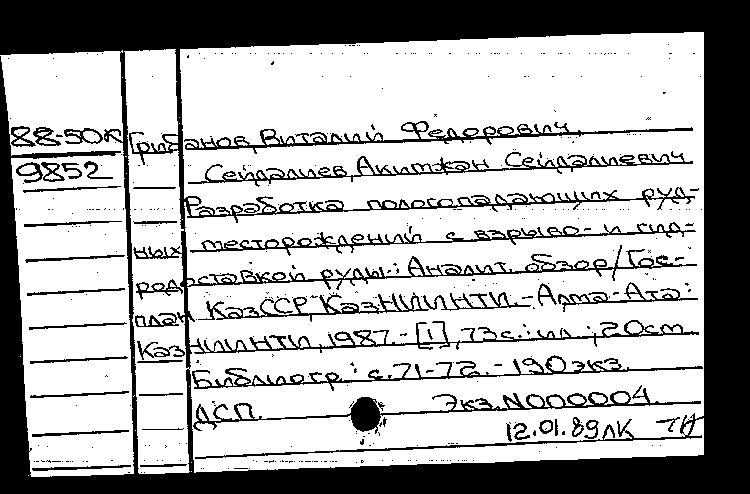 88-50К Грибанов, Виталий Федорович,
9852 Сейдалиев, Акимжан Сейдалиевич
Разработка пологопадающих руд-
ных месторождений с взрыво- и гид-
родоставкой руды: Аналит. обзор/Гос-
план КазССР, КазНИИНТИ.-Алма-Ата:
КазНИИНТИ, 1987.-[1], 73с.: ил.; 20см.
Библиогр.: с.71-72. - 190 экз.
ДСП. Экз.N000004.
12.01.89 ЛК